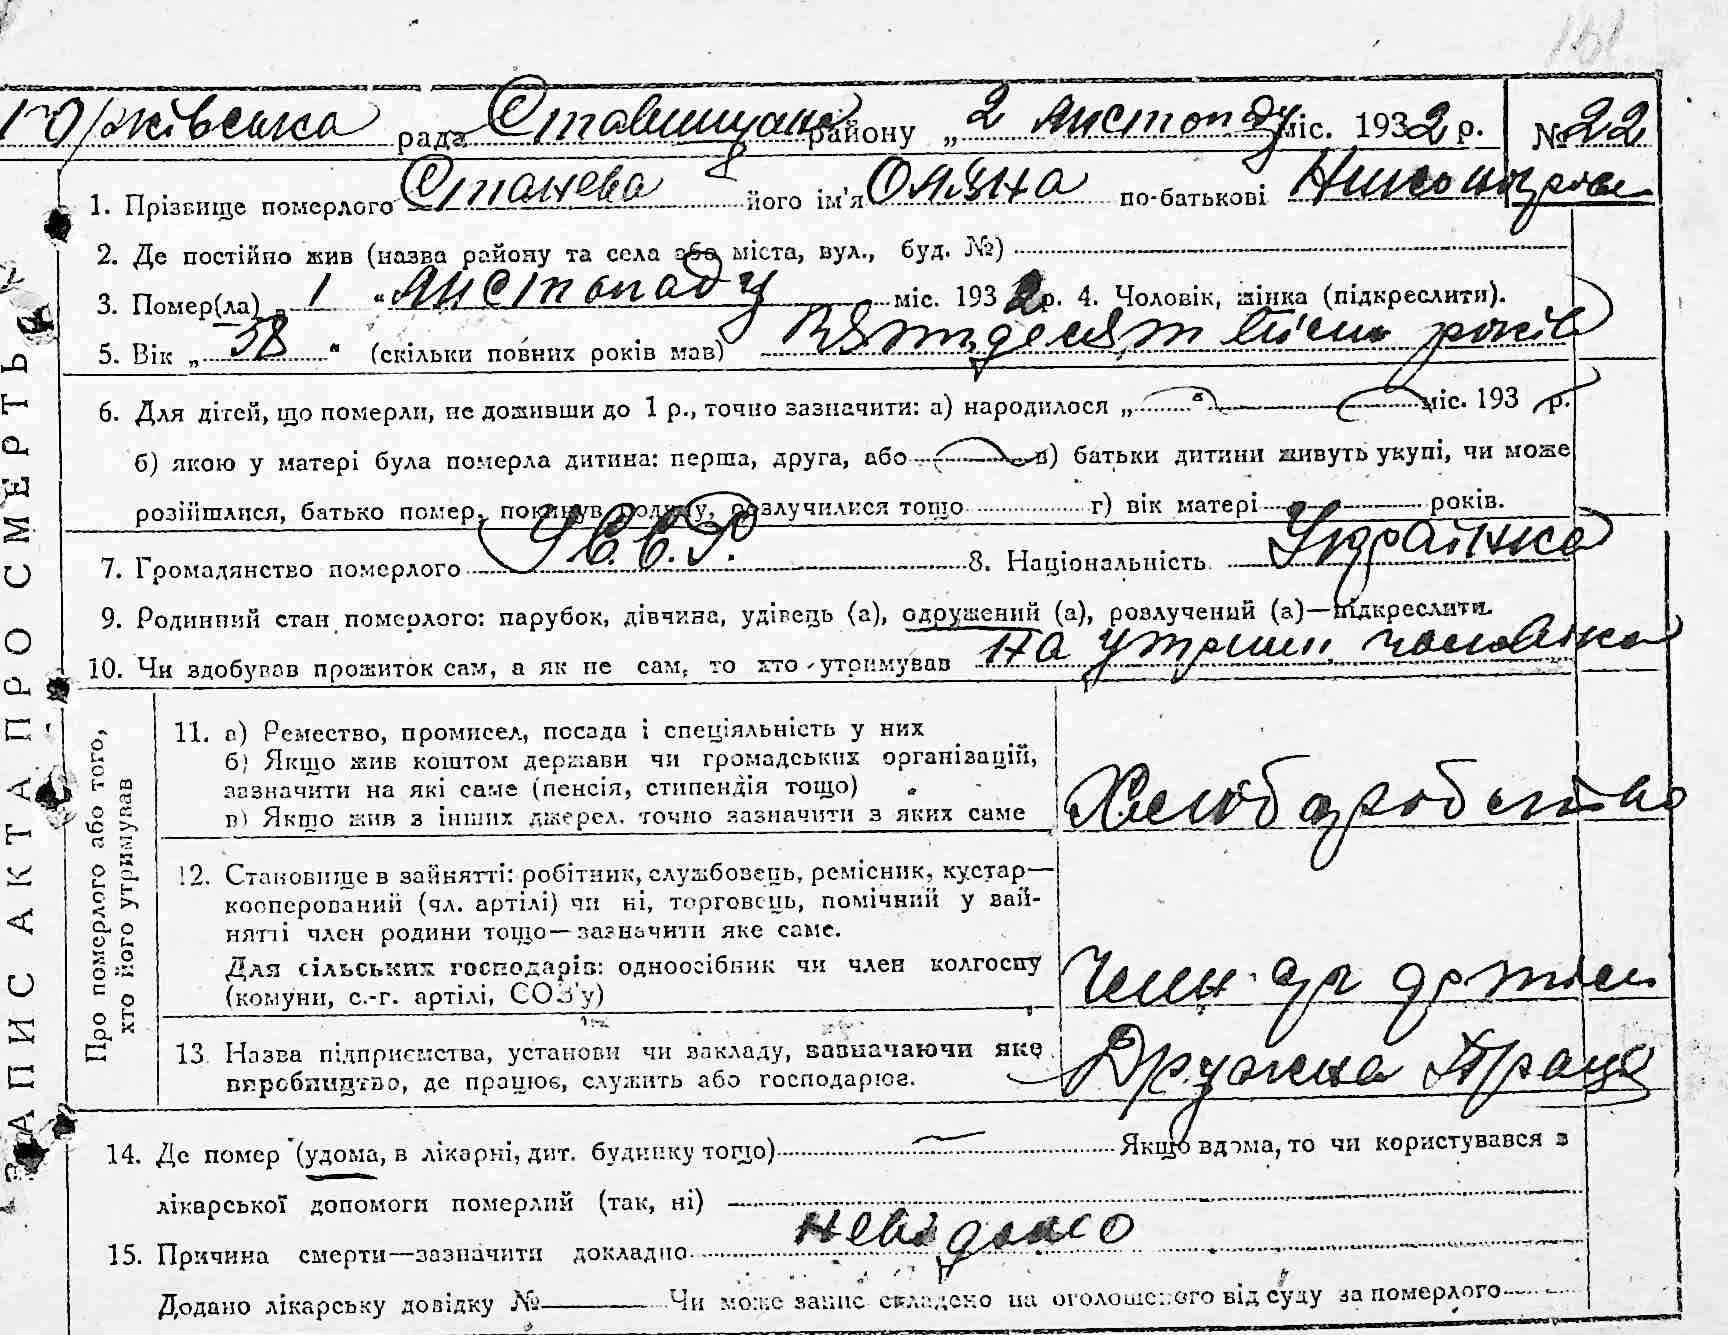 рада Ставищан району „ 2 листопаду міс. 1932 р. № 22
1. Прізвище померлого Станева його ім'я Оляна по-батькові
2. Де постійно жив (назва району та села або міста, вул., буд. №)
3. Помер(ла) „ 1 “ листопаду міс. 1932 р. 4. Чоловік, жінка (підкреслити).
5. Вік „ 58 “ (скільки повних років мав) Пятидесят вісім років
6. Для дітей, що померли, не доживши до 1 р., точно зазначити: а) народилося „ “ міс. 193 р.
б) якою у матері була померла дитина: перша, друга, або в) батьки дитини живуть укупі, чи може
розійшлися, батько помер, покинув родину, розлучилися тощо г) вік матері років.
7. Громадянство померлого У.С.С.Р. 8. Національність Українка
9. Родинний стан померлого: парубок, дівчина, удівець (а), одружений (а), розлучений (а)—підкреслити.
10. Чи здобував прожиток сам, а як не сам, то хто утримував На утрим. чоловіка
ЗАПИС АКТА ПРО СМЕРТЬ
Про померлого або того, хто його утримував
11. а) Ремество, промисел, посада і спеціяльність у них
б) Якщо жив коштом держави чи громадських організацій,
зазначити на які саме (пенсія, стипендія тощо)
в) Якщо жив з інших джерел, точно зазначити з яких саме
Хліборобство
12. Становище в зайнятті: робітник, службовець, ремісник, кустар—
кооперований (чл. артілі) чи ні, торговець, помічний у зай-
нятті член родини тощо—зазначити яке саме.
Для сільських господарів: одноосібник чи член колгоспу
(комуни, с.-г. артілі, СОЗ'у)
Член
13. Назва підприємства, установи чи закладу, зазначаючи яке
виробництво, де працює, служить або господарює.
Дружна Праця
14. Де помер (удома, в лікарні, дит. будинку тощо) Якщо вдома, то чи користувався з
лікарської допомоги померлий (так, ні)
15. Причина смерти—зазначити докладно невідомо
Додано лікарську довідку № Чи може запис складено на оголошеного від суду за померлого